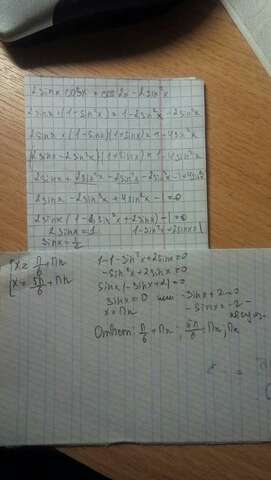 2sinx cos²x = cos2x - 2sin²x
2sinx·(1-sin²x) = 1-2sin²x-2sin²x
2sinx·(1-sinx)(1+sinx) = 1-4sin²x
2sinx - 2sin²x)(1+sinx) = 1-4sin²x
2sinx + 2sin²x - 2sin²x - 2sin³x = 1+4sin²x
2sinx - 2sin³x + 4sin²x - 1=0
2sinx (1-2sin²x+2sinx) - 1=0
2sinx=1
1-sin²x+2sinx=1
sinx=1/2
x = π/6 + πn
x = 5π/6 + πn
1-1-sin²x+2sinx=0
-sin²x+2sinx=0
sinx(-sinx+2)=0
sinx=0 или -sinx+2=0
x=πn
-sinx=-2
Ответ: π/6+πn, 5π/6+πn, πn